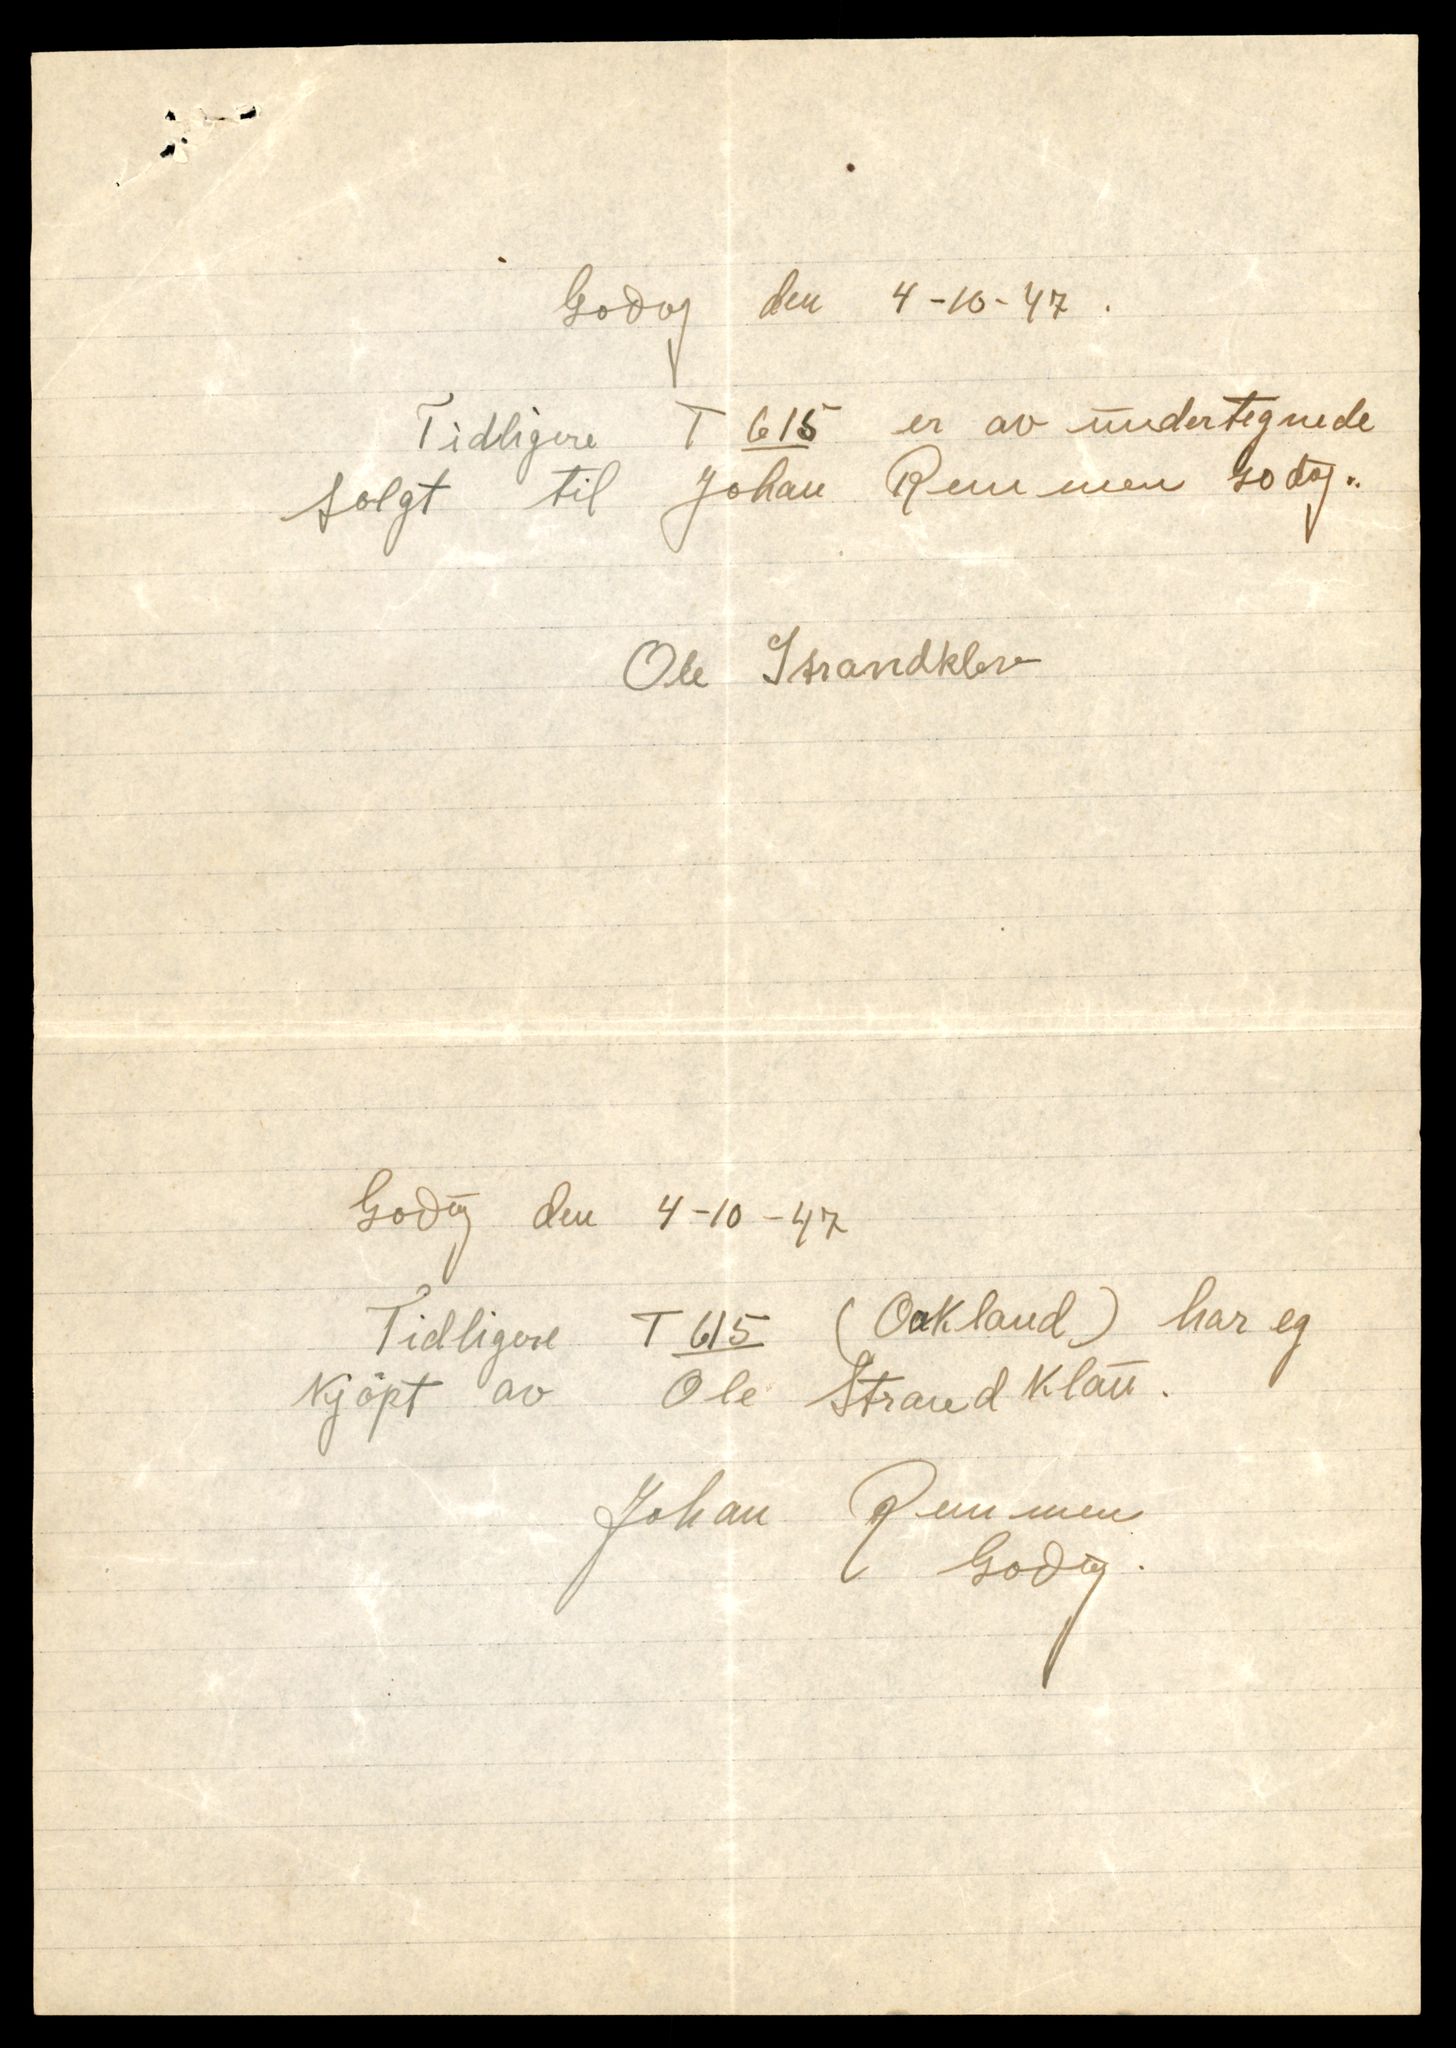 Godøy den 4-10-47.
Tidligere T 615 er av undertegnede
solgt til Johan Remmen Godøy.
Ole Strandklev
Godøy den 4-10-47
Tidligere T 615 (Oakland) har eg
kjöpt av Ole Strand
Johan Remmen
Godøy.